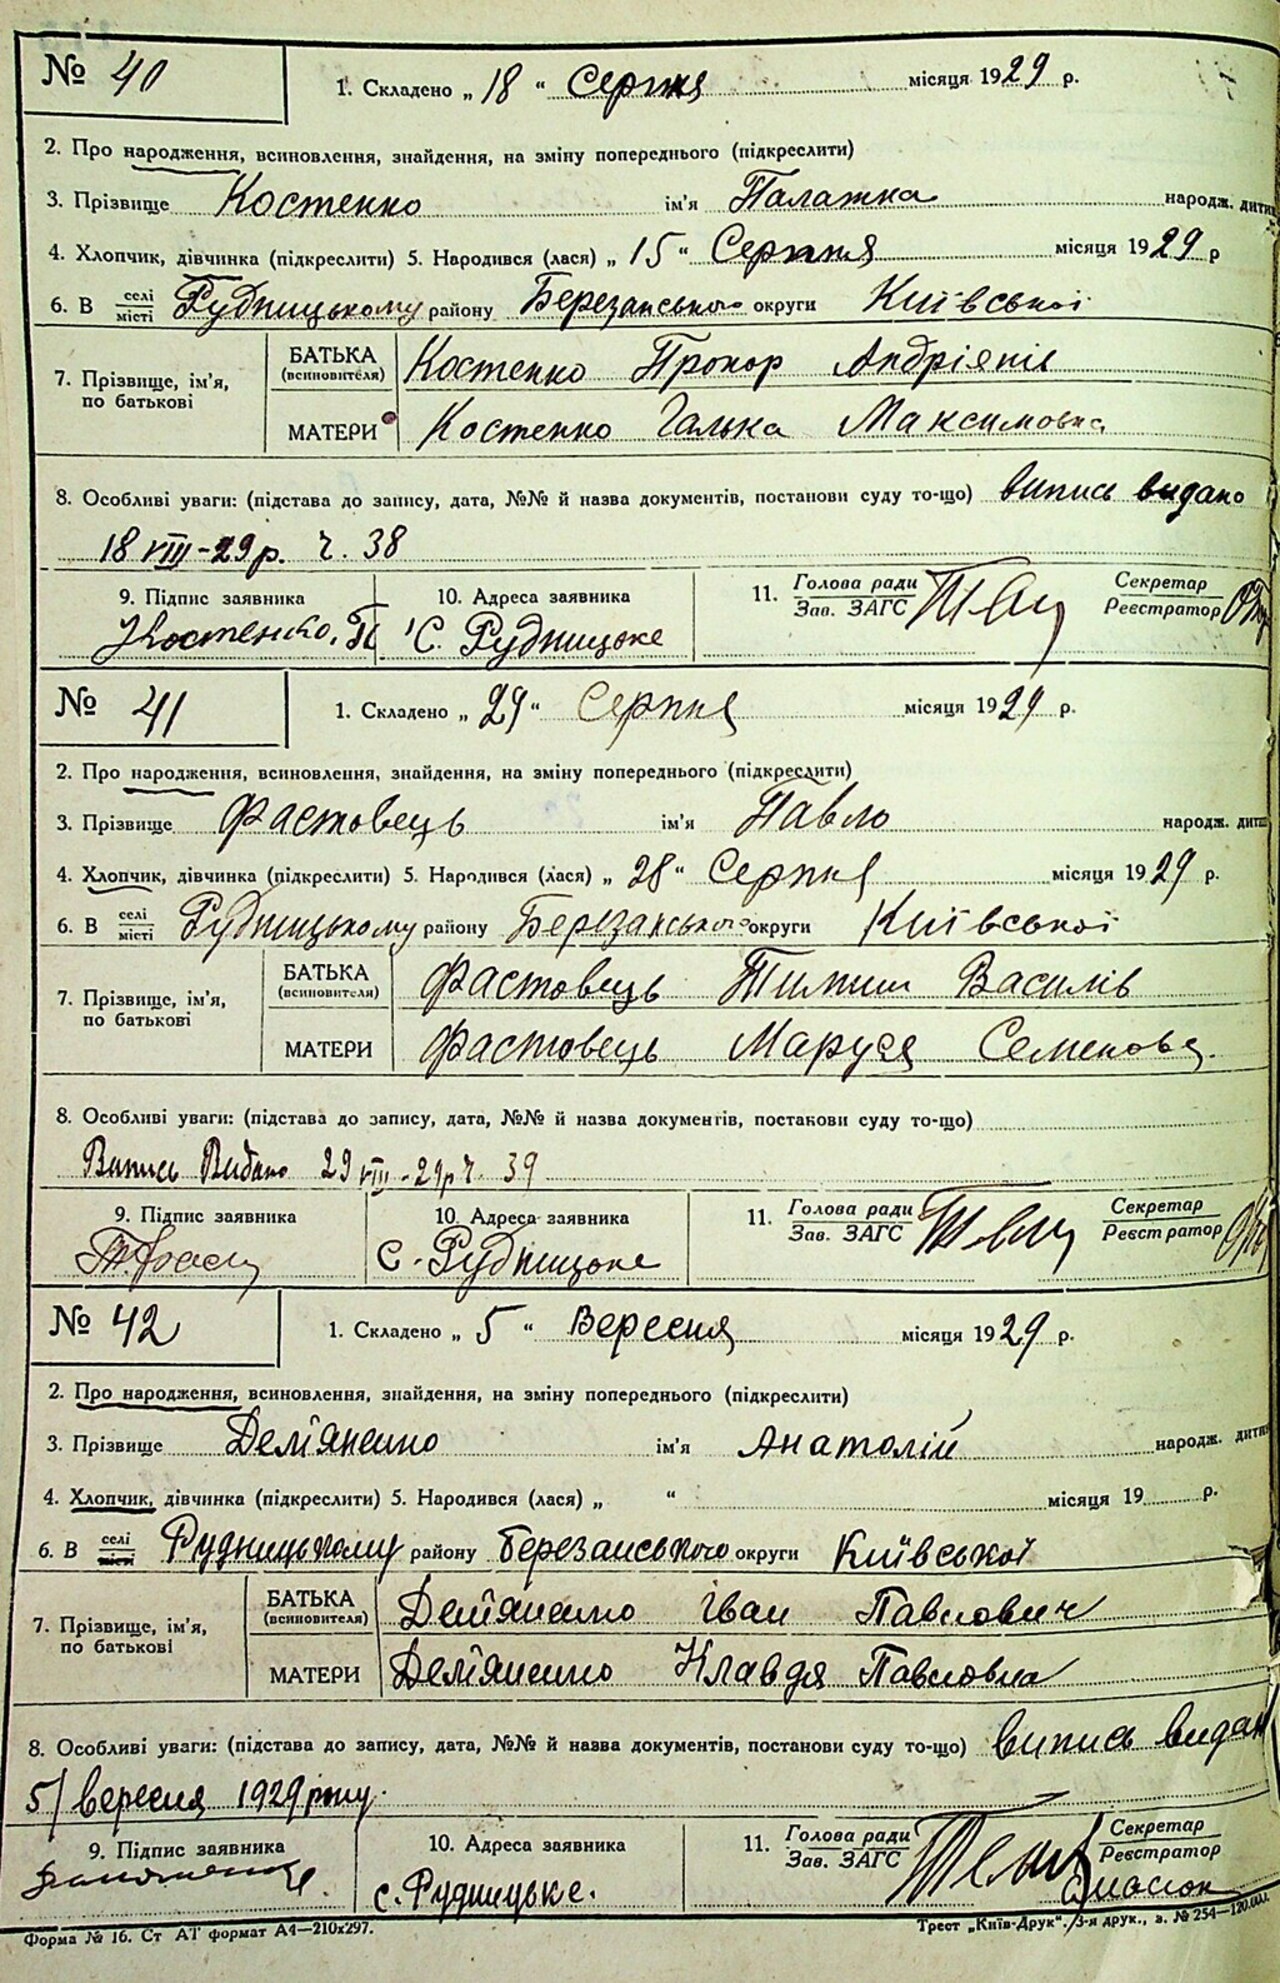 № 40 1. Складено „ 18 “ Серпня місяця 1929 р.
2. Про народження, всиновлення, знайдення, на зміну попереднього (підкреслити)
3. Прізвище Костенко ім'я Палажка народж. дитин
4. Хлопчик, дівчинка (підкреслити) 5. Народився (лася) „ 15 “ Серпня місяця 1929 р
6. В селі місті Рудницькому району Березанського округи Київської
7. Прізвище, ім'я, по батькові БАТЬКА (всиновителя) Костенко Прокор Андріянів
МАТЕРИ Костенко Галька Максимовна
8. Особливі уваги: (підстава до запису, дата, №№ й назва документів, постанови суду то-що) випись видано
18 VIII-29 р. Ч. 38
9. Підпис заявника 10. Адреса заявника 11. Голова ради Зав. ЗАГС Секретар Реєстратор
Костенко. П С. Рудницьке
№ 41 1. Складено „ 29 “ Серпня місяця 1929 р.
2. Про народження, всиновлення, знайдення, на зміну попереднього (підкреслити)
3. Прізвище Фастовець ім'я Павло народж. дити
4. Хлопчик, дівчинка (підкреслити) 5. Народився (лася) „ 28 “ Серпня місяця 1929 р.
6. В селі місті Рудницькому району Березанського округи Київської
7. Прізвище, ім'я, по батькові БАТЬКА (всиновителя) Фастовець Тимиш Василів
МАТЕРИ Фастовець Маруся Семенова
8. Особливі уваги: (підстава до запису, дата, №№ й назва документів, постанови суду то-що)
Випись Видано 29 VIII-29 р Ч. 39
9. Підпис заявника 10. Адреса заявника 11. Голова ради Зав. ЗАГС Секретар Реєстратор
С. Рудницьке
№ 42 1. Складено „ 5 “ Вересня місяця 1929 р.
2. Про народження, всиновлення, знайдення, на зміну попереднього (підкреслити)
3. Прізвище Дем'яненко ім'я Анатолій народж. дитин
4. Хлопчик, дівчинка (підкреслити) 5. Народився (лася) „ “ місяця 19 р.
6. В селі місті Рудницькому району Березанського округи Київської
7. Прізвище, ім'я, по батькові БАТЬКА (всиновителя) Дем'яненко Іван Павлович
МАТЕРИ Дем'яненко Клавдя Павловна
8. Особливі уваги: (підстава до запису, дата, №№ й назва документів, постанови суду то-що) випись видан
5/ вересня 1929 року.
9. Підпис заявника 10. Адреса заявника 11. Голова ради Зав. ЗАГС Секретар Реєстратор
с. Рудницьке.
Форма № 16. Ст АТ формат А4—210х297. Трест „Київ-Друк“. 3-я друк., з. № 254—120.000.